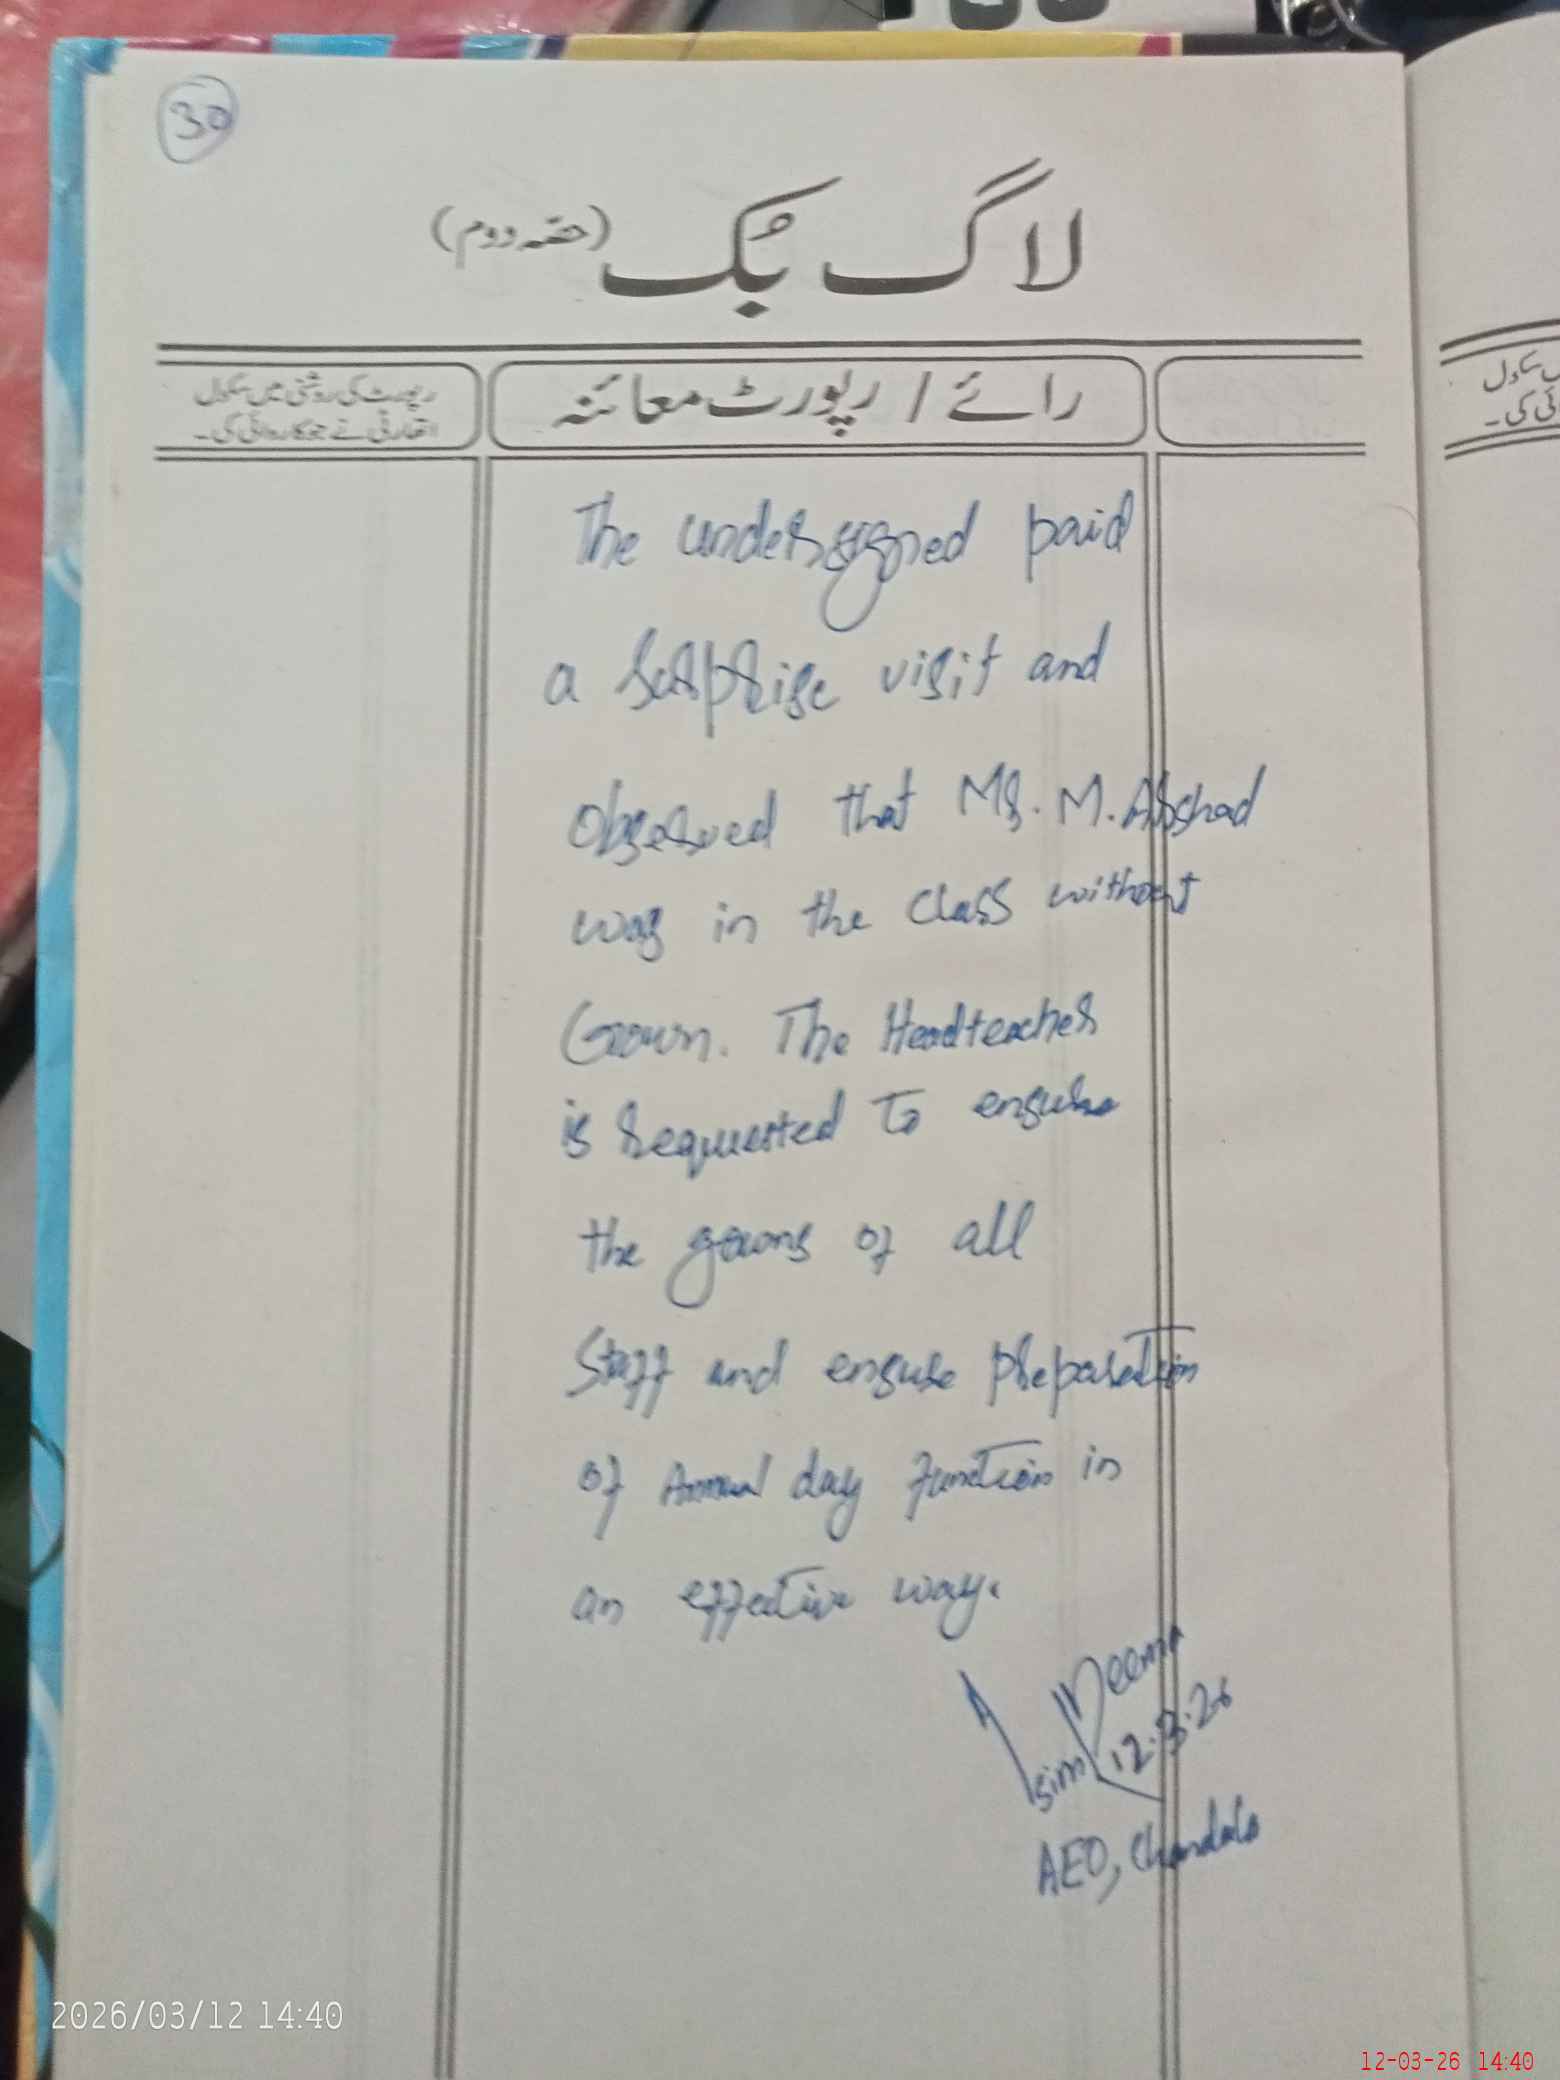 30
لاگ بُک (حصہ دوم)
رپورٹ کی روشنی میں سکول
اتھارٹی نے جو کاروائی کی۔
رائے / رپورٹ معائنہ
The undersigned paid
a surprise visit and
observed that Mr. M. Arshad
was in the class without
Gown. The Headteacher
is requested to ensure
the gowns of all
Staff and ensure preparation
of Annual day function in
an effective way.
Asim Neema
12.3.26
AEO,
2026/03/12 14:40
12-03-26 14:40